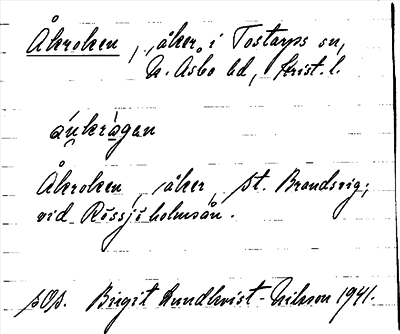 Åkroken, åker i Tostarps sn,
N. Åsbo hd, Krist. l.
åkroken, åker, St. Brandsvig;
vid Rössjöholmsån.
sOp. Birgit Lundkvist-Nilsson 1941.